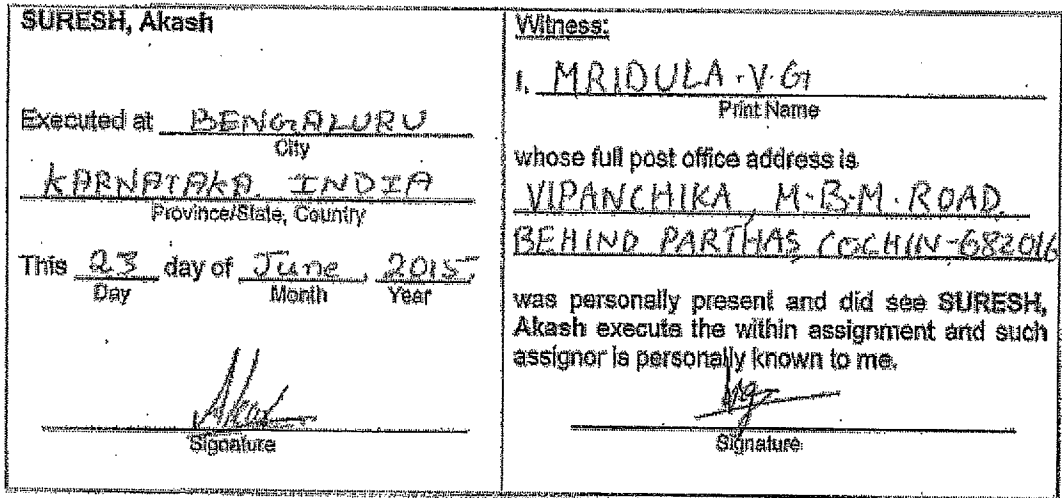 SURESH, Akash
Executed at BENGALURU
City
KARNATAKA INDIA
Province/State, Country
This 23 day of June, 2015
Day Month Year
Signature
Witness:
I, MRIDULA.V.G
Print Name
whose full post office address is
VIPANCHIKA, M.B.M. ROAD.
BEHIND PARTHAS COCHIN-682016
was personally present and did see SURESH,
Akash execute the within assignment and such
assignor is personally known to me.
Signature